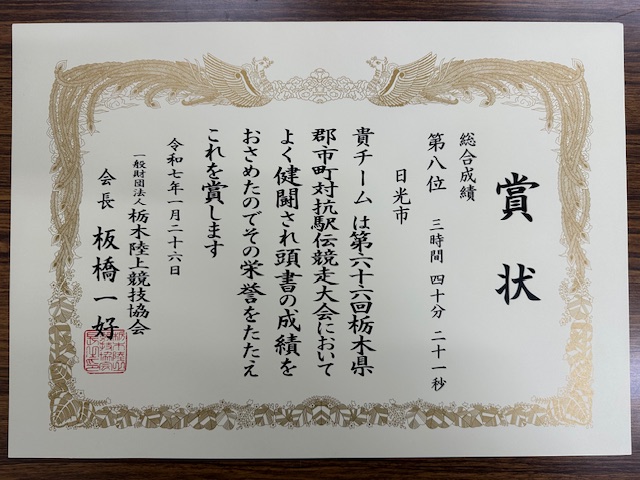 賞状
総合成績
第八位 三時間 四十分 二十一秒
日光市
貴チームは第六十六回栃木県
郡市町対抗駅伝競走大会において
よく健闘され頭書の成績を
おさめたのでその栄誉をたたえ
これを賞します
令和七年一月二十六日
一般財団法人 栃木陸上競技協会
会長 板橋一好